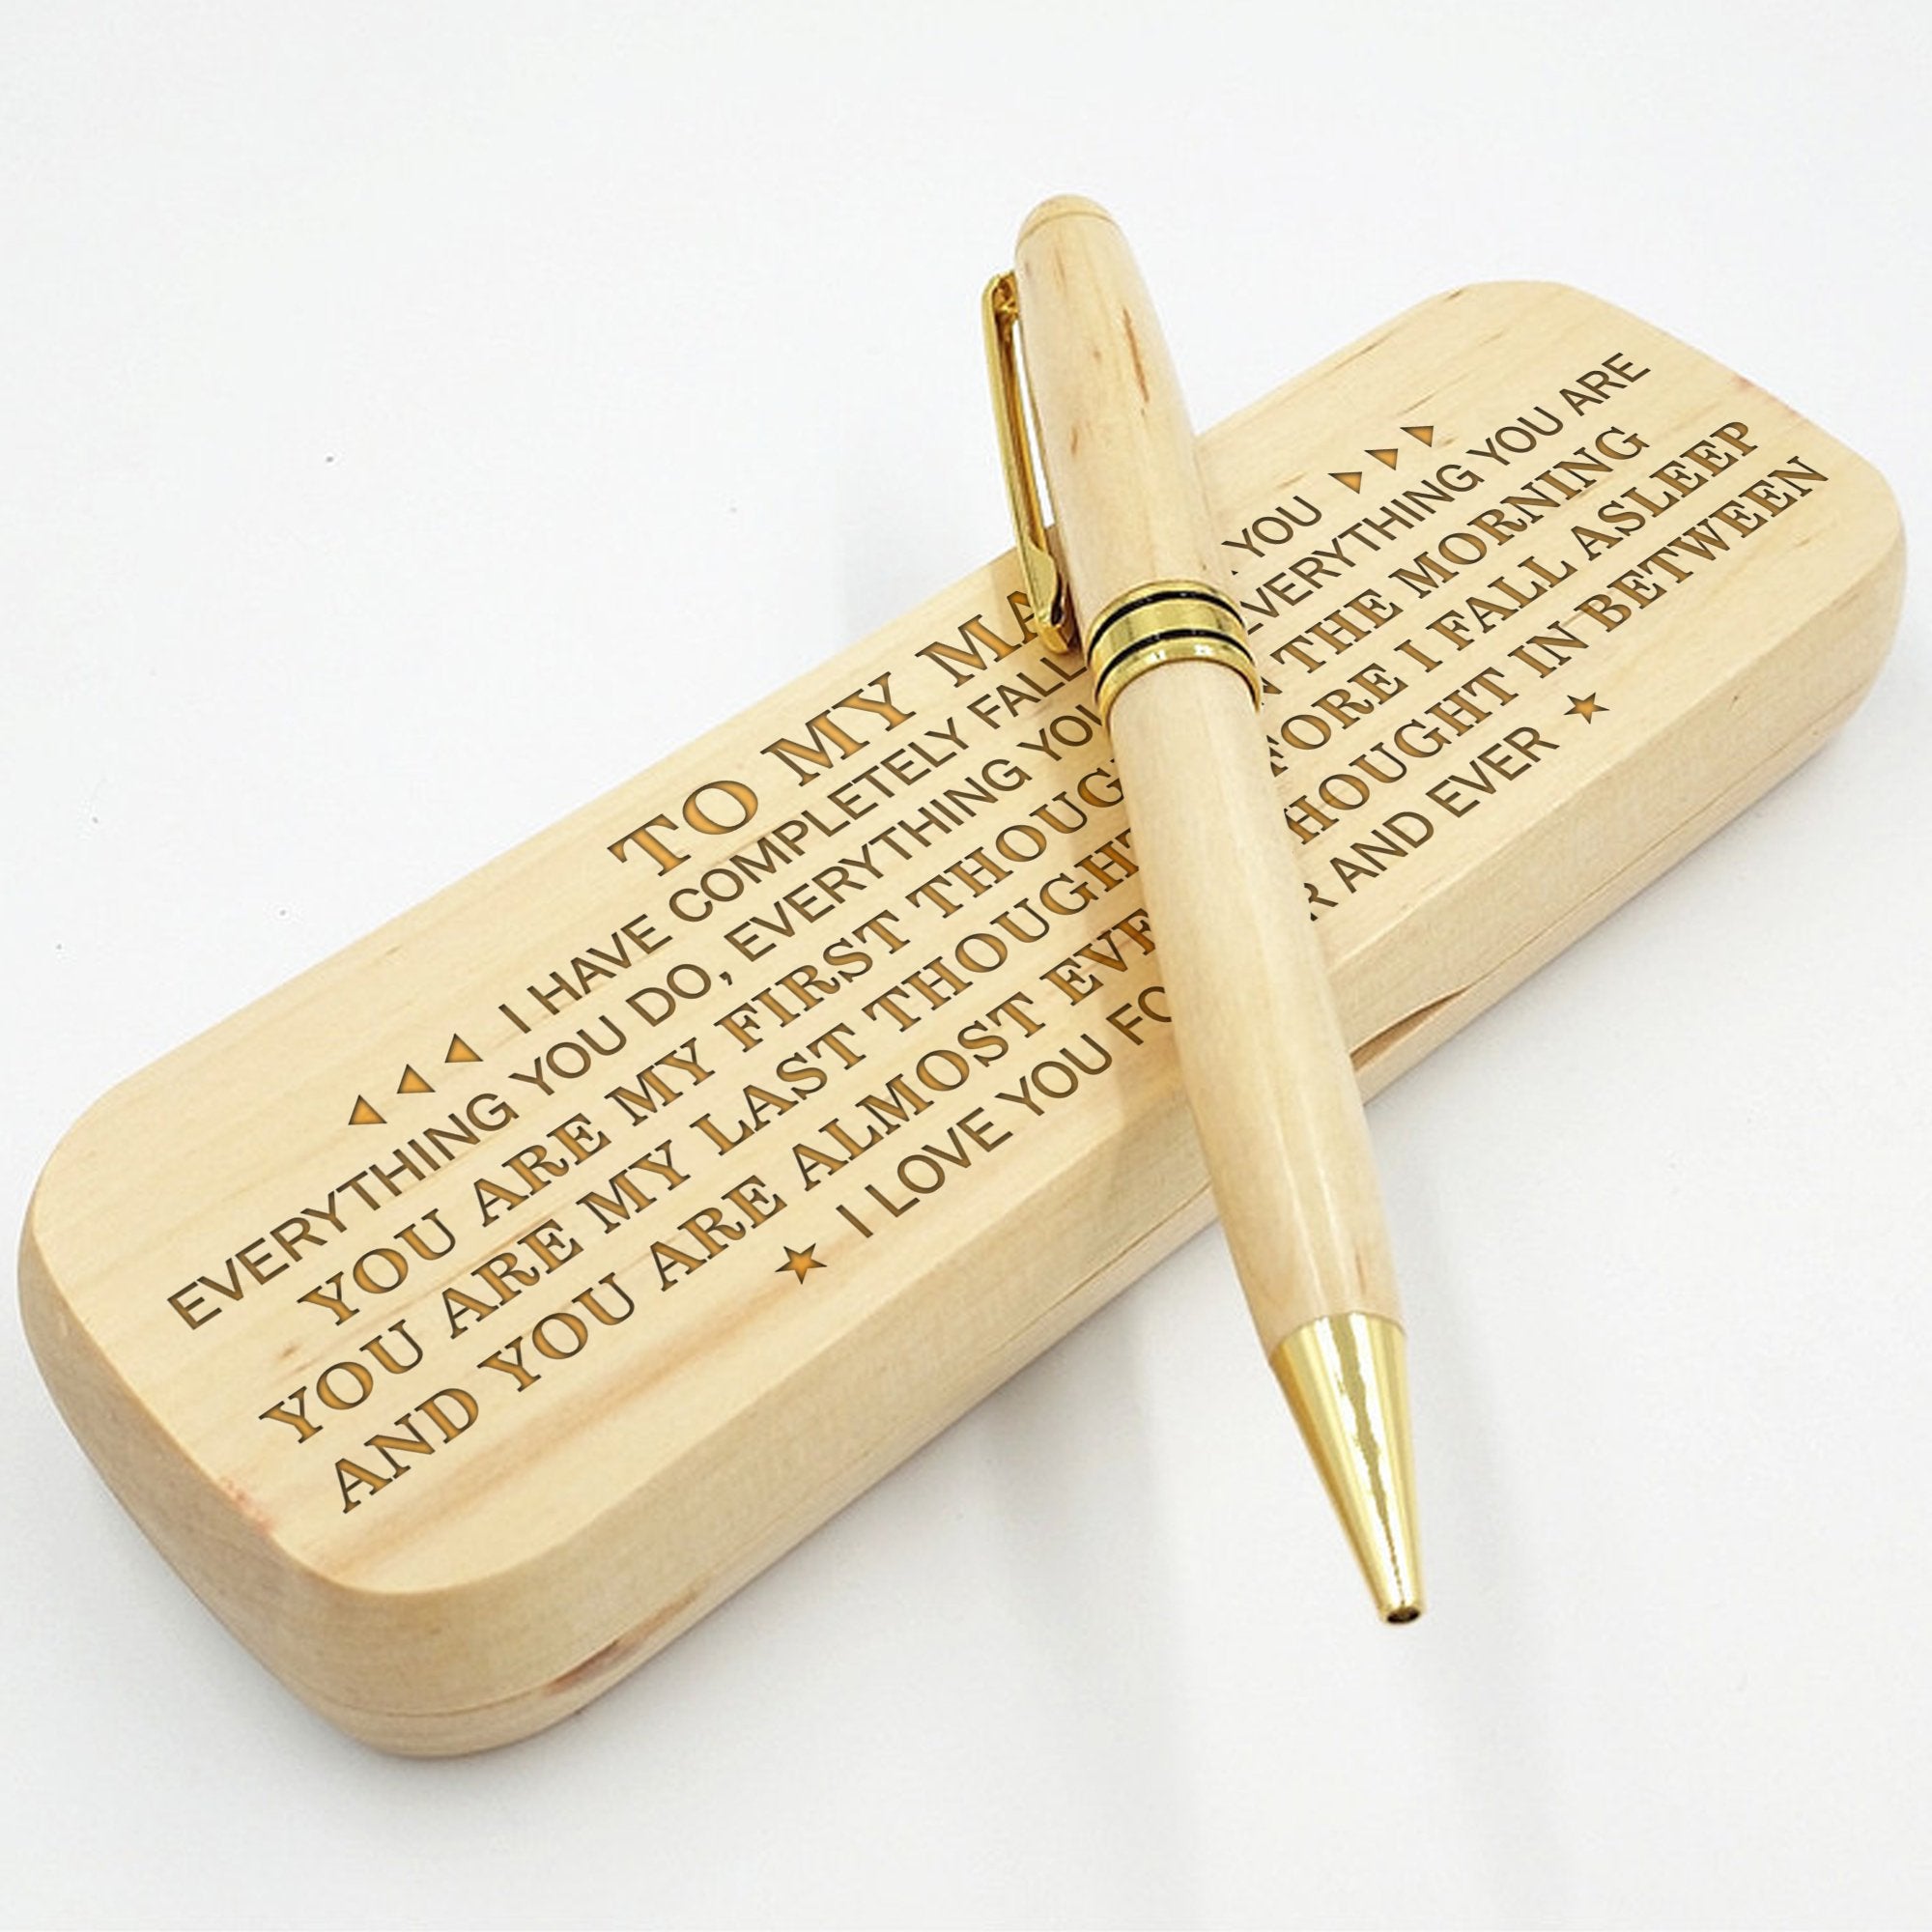 TO MY MA
I HAVE COMPLETELY FALL YOU
EVERYTHING YOU DO, EVERYTHING YOU EVERYTHING YOU ARE
YOU ARE MY FIRST THOUG THE MORNING
YOU ARE MY LAST THOUGHT FORE I FALL ASLEEP
AND YOU ARE ALMOST EVE HOUGHT IN BETWEEN
I LOVE YOU FO R AND EVER